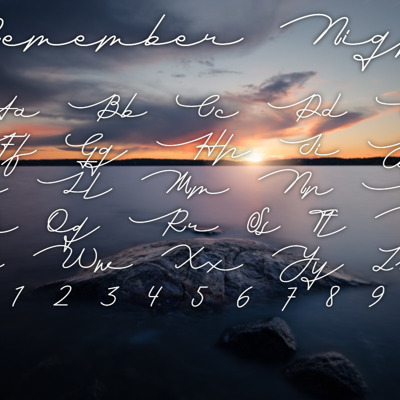 Remember Nigh
Aa Bb Cc Dd
Ff Gg Hh Ii
Ll Mm Nn
Qq Rr Ss Tt
Ww Xx Yy Zz
1 2 3 4 5 6 7 8 9